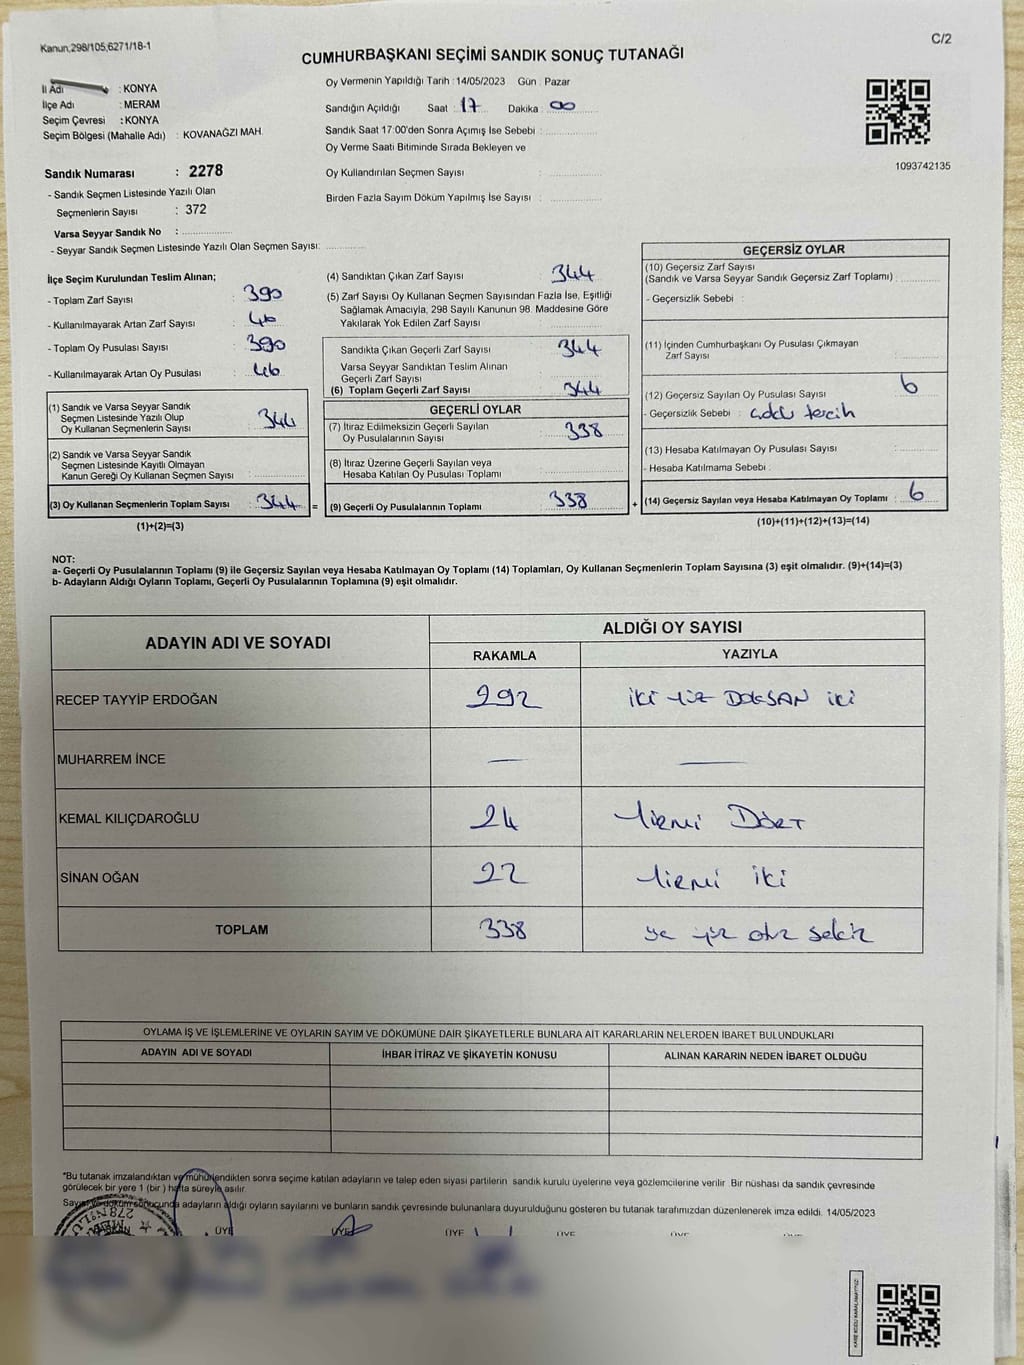 Kanun,298/105,6271/18-1
C/2
CUMHURBAŞKANI SEÇİMİ SANDIK SONUÇ TUTANAĞI
İl Adı : KONYA
İlçe Adı : MERAM
Seçim Çevresi : KONYA
Seçim Bölgesi (Mahalle Adı) : KOVANAĞZI MAH.
Oy Vermenin Yapıldığı Tarih : 14/05/2023 Gün : Pazar
Sandığın Açıldığı Saat : 17 Dakika : 00
Sandık Saat 17:00'den Sonra Açımış İse Sebebi :
Oy Verme Saati Bitiminde Sırada Bekleyen ve
Oy Kullandırılan Seçmen Sayısı :
Birden Fazla Sayım Döküm Yapılmış İse Sayısı :
1093742135
Sandık Numarası : 2278
- Sandık Seçmen Listesinde Yazılı Olan
Seçmenlerin Sayısı : 372
Varsa Seyyar Sandık No :
- Seyyar Sandık Seçmen Listesinde Yazılı Olan Seçmen Sayısı:
İlçe Seçim Kurulundan Teslim Alınan;
- Toplam Zarf Sayısı : 390
- Kullanılmayarak Artan Zarf Sayısı : 46
- Toplam Oy Pusulası Sayısı : 390
- Kullanılmayarak Artan Oy Pusulası : 46
(1) Sandık ve Varsa Seyyar Sandık
Seçmen Listesinde Yazılı Olup
Oy Kullanan Seçmenlerin Sayısı : 344
(2) Sandık ve Varsa Seyyar Sandık
Seçmen Listesinde Kayıtlı Olmayan
Kanun Gereği Oy Kullanan Seçmen Sayısı :
(3) Oy Kullanan Seçmenlerin Toplam Sayısı : 344 =
(1)+(2)=(3)
(4) Sandıktan Çıkan Zarf Sayısı : 344
(5) Zarf Sayısı Oy Kullanan Seçmen Sayısından Fazla İse, Eşitliği
Sağlamak Amacıyla, 298 Sayılı Kanunun 98. Maddesine Göre
Yakılarak Yok Edilen Zarf Sayısı :
Sandıkta Çıkan Geçerli Zarf Sayısı : 344
Varsa Seyyar Sandıktan Teslim Alınan
Geçerli Zarf Sayısı :
(6) Toplam Geçerli Zarf Sayısı : 344
GEÇERLİ OYLAR
(7) İtiraz Edilmeksizin Geçerli Sayılan
Oy Pusulalarının Sayısı : 338
(8) İtiraz Üzerine Geçerli Sayılan veya
Hesaba Katılan Oy Pusulası Toplamı :
(9) Geçerli Oy Pusulalarının Toplamı : 338 +
GEÇERSİZ OYLAR
(10) Geçersiz Zarf Sayısı
(Sandık ve Varsa Seyyar Sandık Geçersiz Zarf Toplamı) :
- Geçersizlik Sebebi :
(11) İçinden Cumhurbaşkanı Oy Pusulası Çıkmayan
Zarf Sayısı :
(12) Geçersiz Sayılan Oy Pusulası Sayısı : 6
- Geçersizlik Sebebi : çoklu tercih
(13) Hesaba Katılmayan Oy Pusulası Sayısı :
- Hesaba Katılmama Sebebi :
(14) Geçersiz Sayılan veya Hesaba Katılmayan Oy Toplamı : 6
(10)+(11)+(12)+(13)=(14)
NOT:
a- Geçerli Oy Pusulalarının Toplamı (9) ile Geçersiz Sayılan veya Hesaba Katılmayan Oy Toplamı (14) Toplamları, Oy Kullanan Seçmenlerin Toplam Sayısına (3) eşit olmalıdır. (9)+(14)=(3)
b- Adayların Aldığı Oyların Toplamı, Geçerli Oy Pusulalarının Toplamına (9) eşit olmalıdır.
ADAYIN ADI VE SOYADI
ALDIĞI OY SAYISI
RAKAMLA YAZIYLA
RECEP TAYYİP ERDOĞAN 292 iki YÜZ DOKSAN iki
MUHARREM İNCE — —
KEMAL KILIÇDAROĞLU 24 Yirmi DÖRT
SİNAN OĞAN 22 Yirmi iki
TOPLAM 338 üç yüz otuz sekiz
OYLAMA İŞ VE İŞLEMLERİNE VE OYLARIN SAYIM VE DÖKÜMÜNE DAİR ŞİKAYETLERLE BUNLARA AİT KARARLARIN NELERDEN İBARET BULUNDUKLARI
ADAYIN ADI VE SOYADI İHBAR İTİRAZ VE ŞİKAYETİN KONUSU ALINAN KARARIN NEDEN İBARET OLDUĞU
*Bu tutanak imzalandıktan ve mühürlendikten sonra seçime katılan adayların ve talep eden siyasi partilerin sandık kurulu üyelerine veya gözlemcilerine verilir. Bir nüshası da sandık çevresinde
görülecek bir yere 1 (bir ) hafta süreyle asılır.
Sayım döküm sonucunda adayların aldığı oyların sayılarını ve bunların sandık çevresinde bulunanlara duyurulduğunu gösteren bu tutanak tarafımızdan düzenlenerek imza edildi. 14/05/2023
ÜYE ÜYE ÜYE ÜYE ÜYE ÜYE